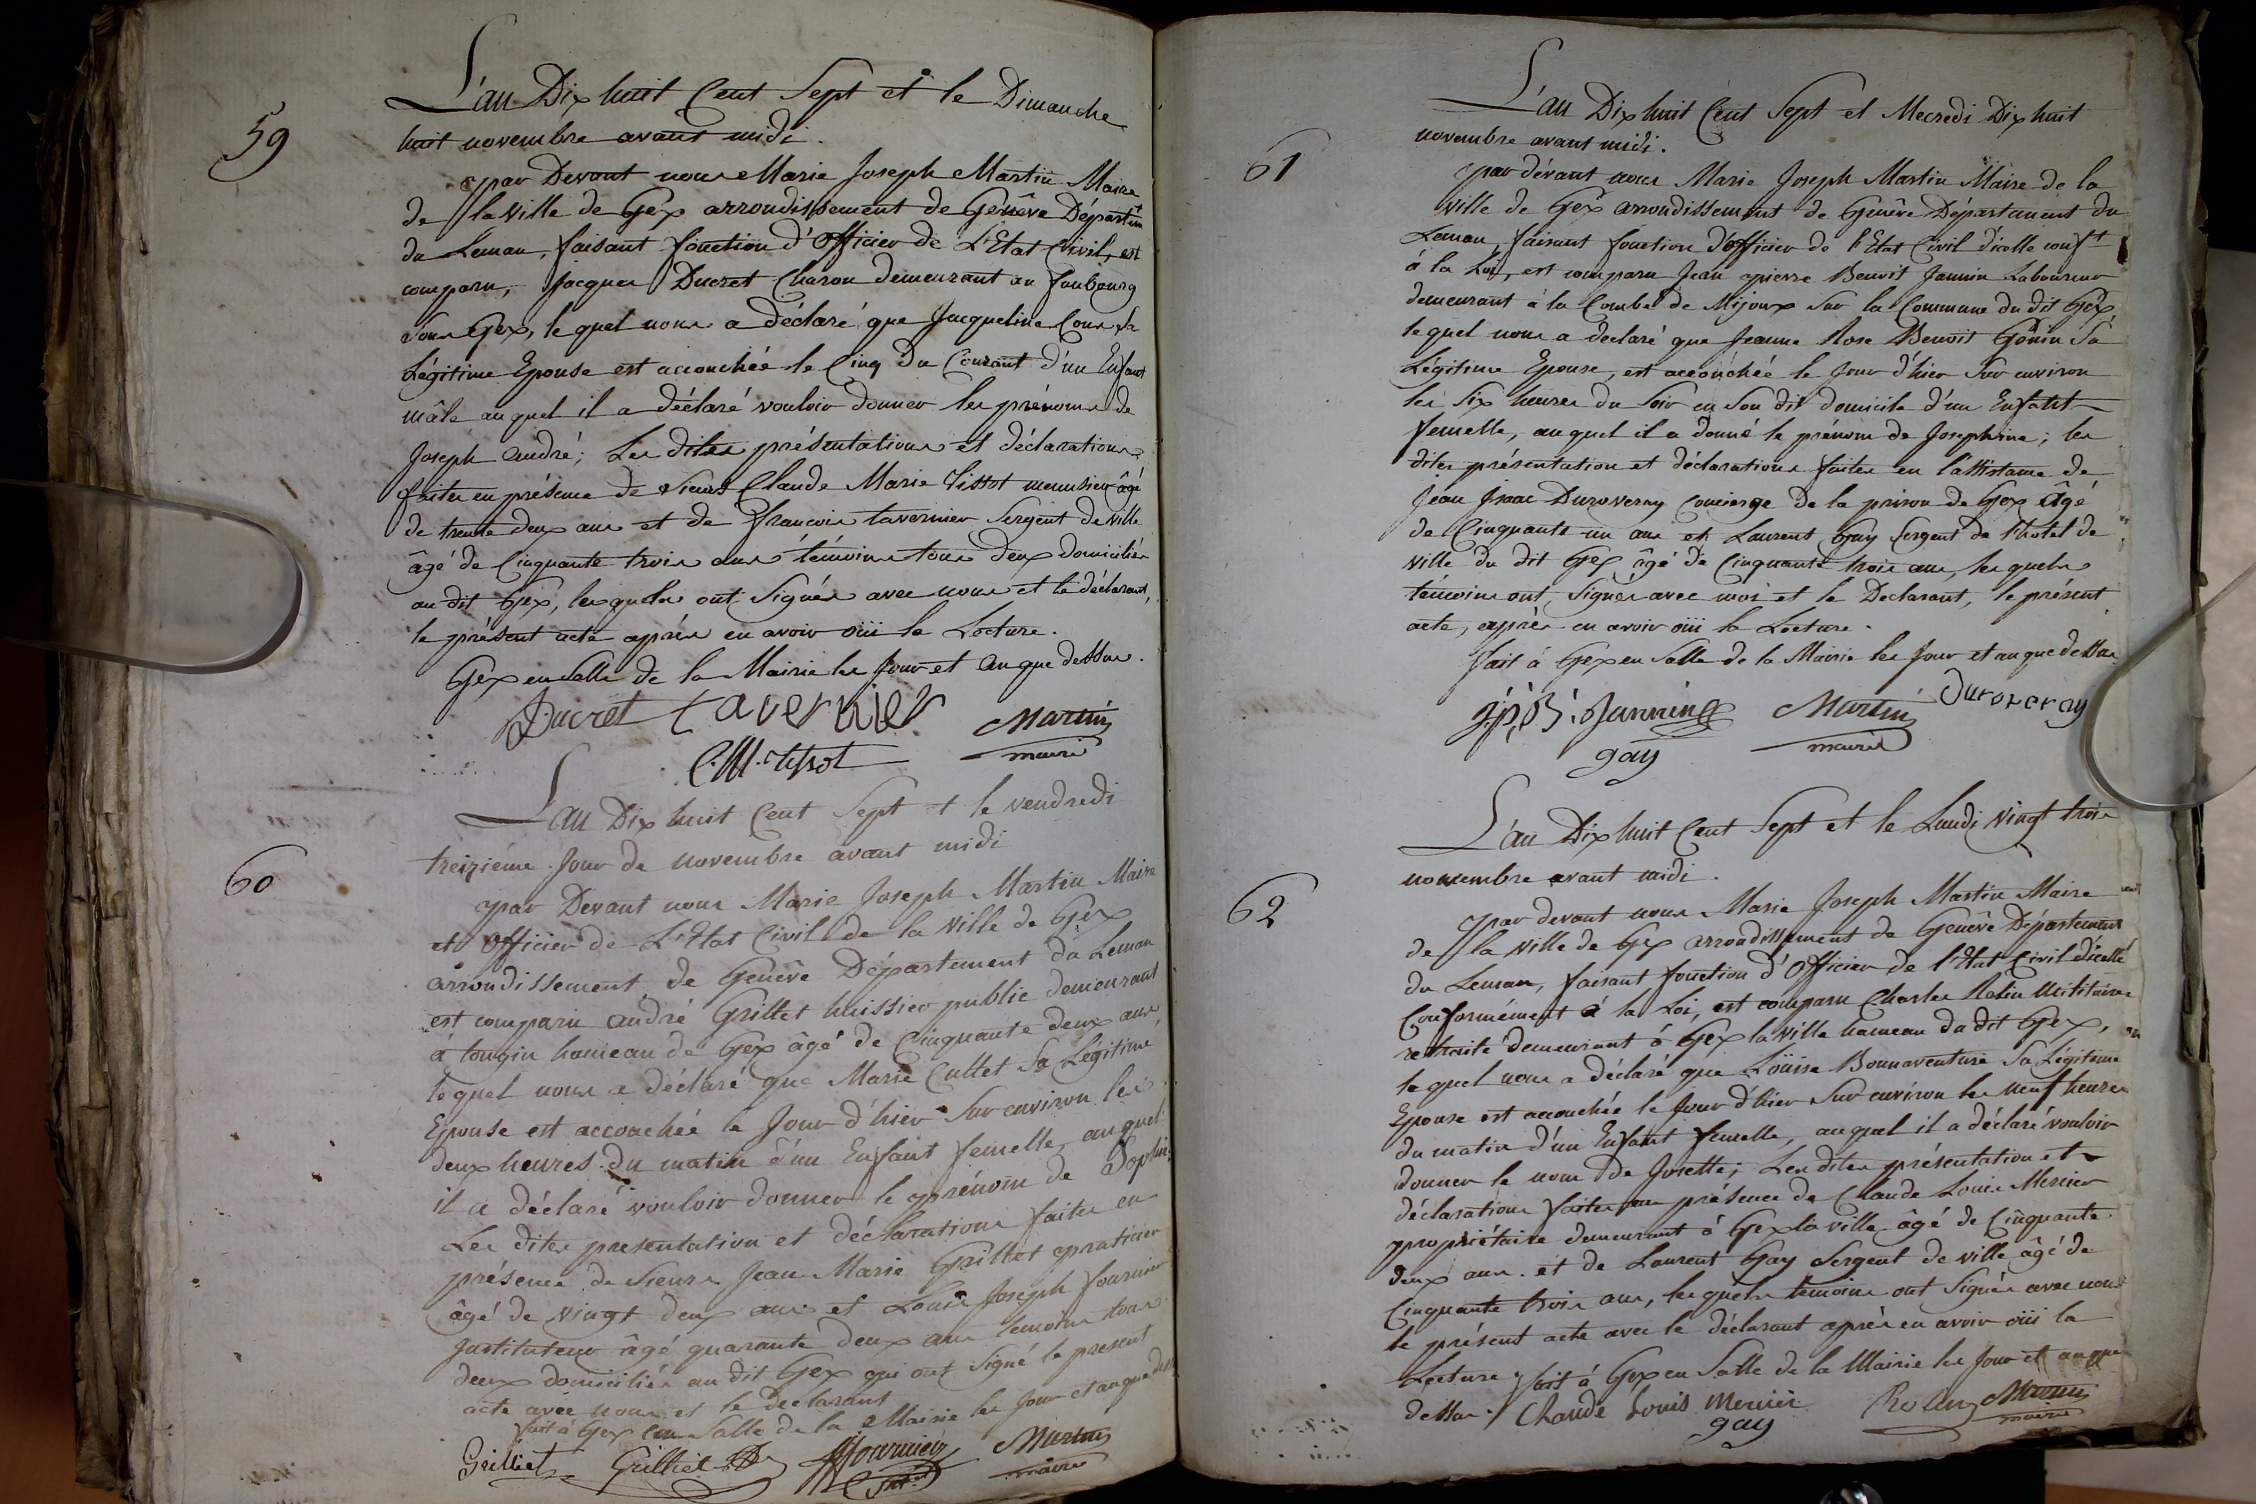 59
L'an Dix huit Cent Sept et le Dimanche
huit novembre avant midi.
par Devant nous Marie Joseph Martin Maire
de la Ville de Gex arrondissement de Genêve Départemt
du Leman, faisant fonction d'Officier de L'Etat Civil, est
comparu, Jacques Ducret Charon demeurant au faubourg
sous Gex, le quel nous a déclaré que Jacqueline Cour sa
Légitime Epouse est accouchée le Cinq du Courant d'un Enfant
mâle au quel il a Déclaré vouloir donner les prénoms de
Joseph andré; Les dites présentations et déclarations
faites en présence de Sieurs Claude Marie Tissot menuisier âgé
de trente deux ans et de françois tavernier Sergent de ville
âgé de Cinquante trois ans témoins tous deux domiciliés
au dit Gex, les quels ont Signés avec nous et le déclarant,
le présent acte après en avoir oüi la Lecture.
Gex en Salle de la Mairie les Jour et an que dessus.
Ducret tavernier Martin
C. M. tissot maire
60
L'an Dix huit Cent Sept et le vendredi
treizième Jour de novembre avant midi
par Devant nous Marie Joseph Martin Maire
et Officier de L'Etat Civil de la Ville de Gex
arrondissement de Genêve Département du Leman
est comparu andré Grillet huissier public demeurant
à tougin hameau de Gex âgé de Cinquante deux ans,
le quel nous a déclaré que Marie Cultet Sa Légitime
Epouse est accouchée le Jour d'hier Sur environ les
deux heures du matin d'un Enfant femelle, au quel
il a déclaré vouloir donner le prénom de
Les dites presentation et déclarations faites en
présence de Sieurs Jean Marie Grillet praticien
âgé de vingt deux ans et Louis Joseph fournier
Jnstituteur âgé quarante deux ans temoins tous
deux domiciliés au dit Gex qui ont Signé le present
acte avec nous et le declarant
fait à Gex en Salle de la Mairie les Jour et an que dessus
Grilliet Grilliet fournier Martin
maire
61
L'an Dix huit Cent Sept et Mecredi Dix huit
novembre avant midi.
par dévant nous Marie Joseph Martin Maire de la
ville de Gex arrondissement de Genêve Département du
Leman, faisant fonction d'officier de l'Etat Civil d'icelle conft
à la Loi, est comparu Jean pierre Benoit Jannin Laboureur
demeurant à la Combe de Mijoux Sur la Commune du dit Gex,
le quel nous a déclaré que Jeanne Rose Benoit Gönin Sa
Légitime Epouse, est accouchée le Jour d'hier Sur environ
les Six heures du Soir en Son dit domicile d'un Enfant
femelle, au quel il a donné le prénom de Josephine; les
dites présentation et déclarations faites en l'assistance de
Jean Jsaac Duroveray Concierge de la prison de Gex Âgé
de Cinquante un ans et Laurent Gay Sergent de l'hotel de
ville du dit Gex âgé de Cinquante trois ans, les quels
témoins ont Signés avec moi et le Declarant, le présent
acte, après en avoir oüi la Lecture.
fait à Gex en Salle de la Mairie les Jour et an que dessus
j. p. B. Jannin Martin Duroveray
gay maire
62
L'an Dix huit Cent Sept et le Lundi vingt trois
novembre avant midi.
par devant nous Marie Joseph Martin Maire
de la ville de Gex arrondissement de Genêve Département
du Leman, faisant fonction d'Officier de l'Etat Civil d'icelle
Conformément à la Loi, est comparu Charles Rolin Militaire
retraité demeurant à Gex la ville hameau du dit Gex,
le quel nous a déclaré que Loüise Bonnaventure Sa Légitime
Epouse est accouchée le Jour d'hier Sur environ les neuf heures
du matin d'un Enfant femelle, au quel il a déclaré vouloir
donner le nom de Josette; Les dites présentation et
déclarations faites en présence de Claude Louis Mercier
propriétaire demeurant à Gex la ville âgé de Cinquante
deux ans. et de Laurent Gay Sergent de ville âgé de
Cinquante trois ans, les quels témoins ont Signés avec nous
le présent acte avec le déclarant après en avoir oüi la
Lecture fait à Gex en Salle de la Mairie les Jour et an que
dessus. Claude Louis Mercier Martin
gay maire